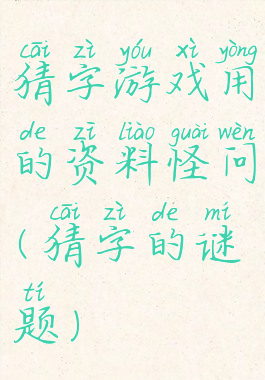 cāi zì yóu xì yòng
猜字游戏用
de zī liào guài wèn
的资料怪问
cāi zì de mí
(猜字的谜
tí
题)